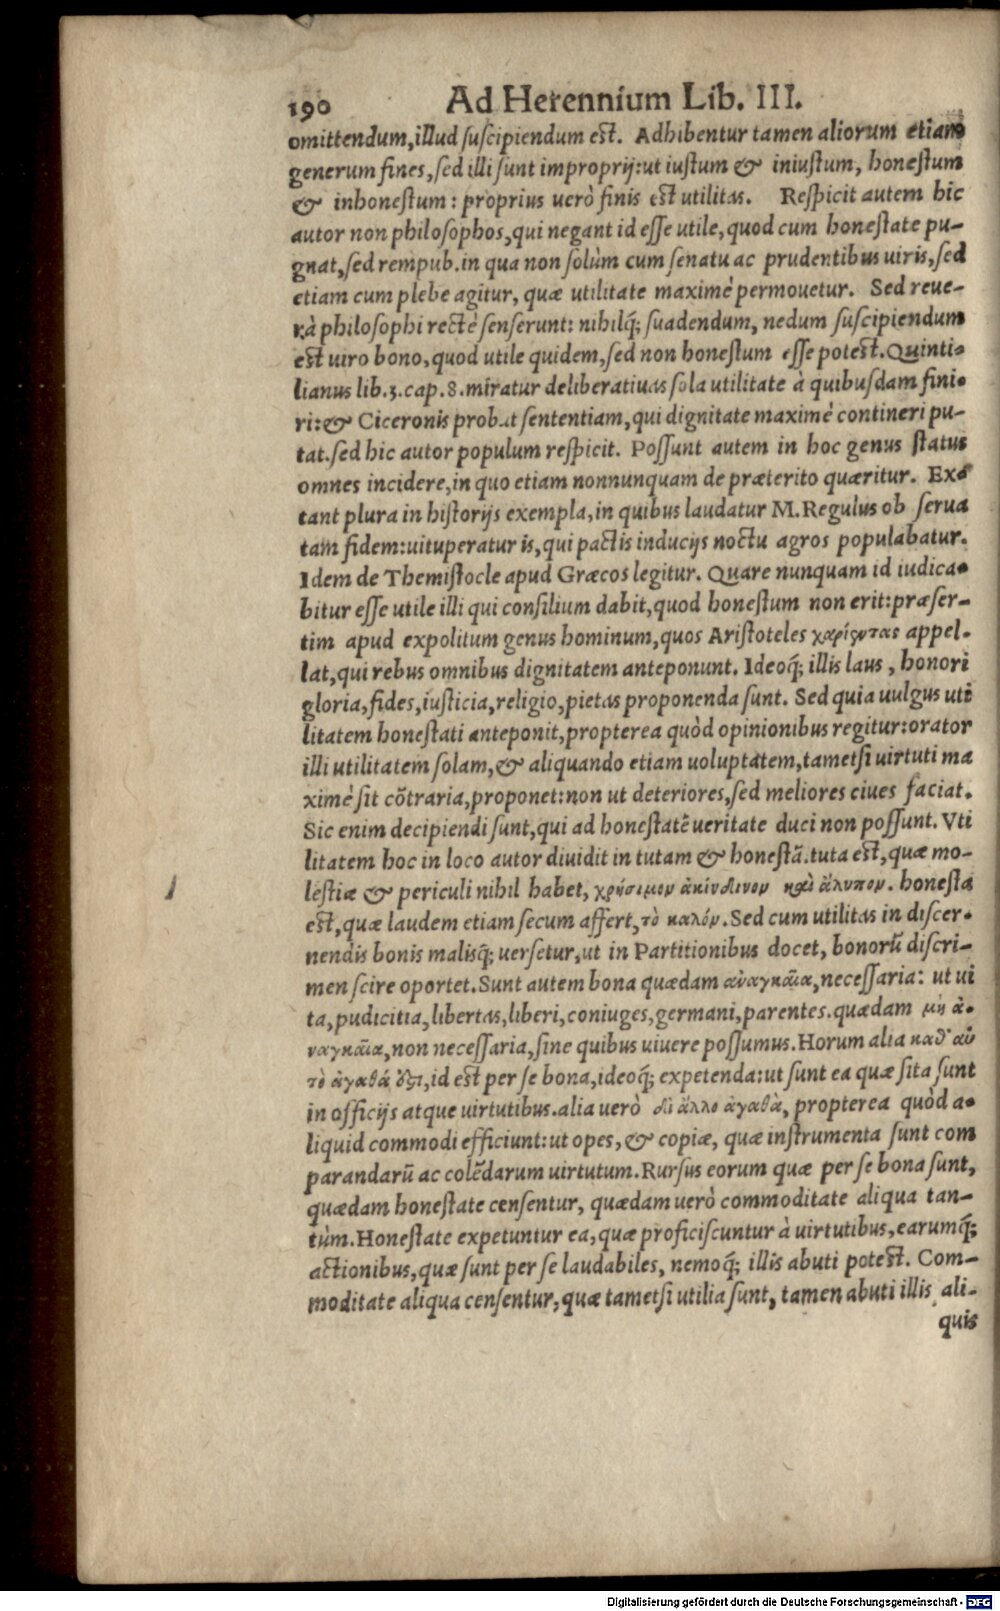 190 Ad Herennium Lib. III.
omittendum, illud suscipiendum est. Adhibentur tamen aliorum etiam
generum fines, sed illi sunt improprij: ut iustum & iniustum, honestum
& inhonestum: proprius uerò finis est utilitas. Respicit autem hic
autor non philosophos, qui negant id esse utile, quod cum honestate pu-
gnat, sed rempub. in qua non solùm cum senatu ac prudentibus uiris, sed
etiam cum plebe agitur, quæ utilitate maximè permouetur. Sed reue-
rà philosophi rectè senserunt: nihilq́; suadendum, nedum suscipiendum
est uiro bono, quod utile quidem, sed non honestum esse potest. Quinti-
lianus lib.3.cap.8. miratur deliberatiuas sola utilitate à quibusdam fini-
ri: & Ciceronis probat sententiam, qui dignitate maximè contineri pu-
tat. sed hic autor populum respicit. Possunt autem in hoc genus status
omnes incidere, in quo etiam nonnunquam de præterito quæritur. Ex-
tant plura in historijs exempla, in quibus laudatur M. Regulus ob serua
tam fidem: uituperatur is, qui pactis inducijs noctu agros populabatur.
Idem de Themistocle apud Græcos legitur. Quare nunquam id iudica-
bitur esse utile illi qui consilium dabit, quod honestum non erit: præser-
tim apud expolitum genus hominum, quos Aristoteles χαρίεντας appel-
lat, qui rebus omnibus dignitatem anteponunt. Ideoq́; illis laus, honori
gloria, fides, iusticia, religio, pietas proponenda sunt. Sed quia uulgus uti
litatem honestati anteponit, propterea quòd opinionibus regitur: orator
illi utilitatem solam, & aliquando etiam uoluptatem, tametsi uirtuti ma
ximè sit cõtraria, proponet: non ut deteriores, sed meliores ciues faciat.
Sic enim decipiendi sunt, qui ad honestatẽ ueritate duci non possunt. Vti
litatem hoc in loco autor diuidit in tutam & honestã. tuta est, quæ mo-
lestiæ & periculi nihil habet, χρήσιμον ἀκίνδινον καὶ ἄλυπον. honesta
est, quæ laudem etiam secum affert, τὸ καλόν. Sed cum utilitas in discer-
nendis bonis malisq́; uersetur, ut in Partitionibus docet, bonorũ discri-
men scire oportet. Sunt autem bona quædam ἀναγκαῖα, necessaria: ut ui
ta, pudicitia, libertas, liberi, coniuges, germani, parentes. quædam μὴ ἀ-
ναγκαῖα, non necessaria, sine quibus uiuere possumus. Horum alia καθ᾽ αὑ
τὸ ἀγαθά ὅζι, id est per se bona, ideoq́; expetenda: ut sunt ea quæ sita sunt
in officijs atque uirtutibus. alia uerò δι ἄλλο ἀγαθὰ, propterea quòd a-
liquid commodi efficiunt: ut opes, & copiæ, quæ instrumenta sunt com
parandarũ ac colẽdarum uirtutum. Rursus eorum quæ per se bona sunt,
quædam honestate censentur, quædam uerò commoditate aliqua tan-
tùm. Honestate expetuntur ea, quæ proficiscuntur à uirtutibus, earumq́;
actionibus, quæ sunt per se laudabiles, nemoq́; illis abuti potest. Com-
moditate aliqua censentur, quæ tametsi utilia sunt, tamen abuti illis ali-
quis
Digitalisierung gefördert durch die Deutsche Forschungsgemeinschaft - DFG